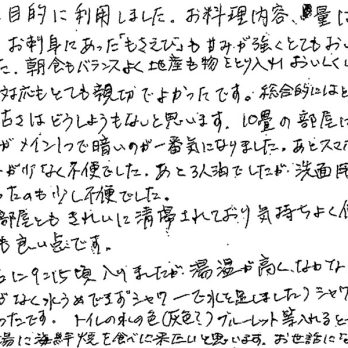 目的に利用しました。お料理内容、量は
お刺身にあった「もさえび」も甘みが強くとてもおい
た。朝食もバランスよく地産も物をとり入れおいしくい
対応もとても親切でよかったです。総合的にはと
古さはどうしようもないと思います。10畳の部屋に
がメイン1つで暗いのが一番気になりました。あとスマ
が少なく不便でした。あと3人泊でしたが、洗面用
ったのも少し不便でした。
部屋ともきれいに清掃されており気持ちよく使
も良い点です。
に9:15頃入りましたが湯温が高く、なかな
がなく水うめできずシャワーで水を足しました)シャワ
ったです。トイレの水の色(灰色?)ブルーレット等入れると
場に海鮮焼を食べに来たいと思います。お世話にな